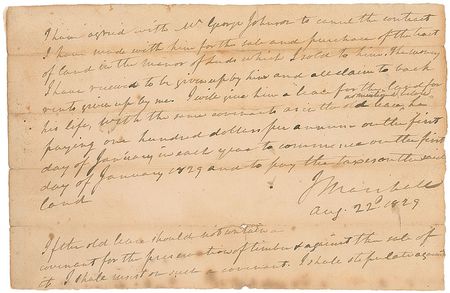 I have agreed with Mr George Johnson to cancel the contract
I have made with him for the sale and purchase of the tract
of land in the Manor of Leeds which I sold to him. The money
I have received to be given up by him and all claim to back
rents given up by me. I will give him a lease for the land for
his life, with the same covenants as in the old lease, he
paying one hundred dollars per annum on the first
day of January in each year to commence on the first
day of January 1829 and to pay the taxes on the said
land
J Marshall
Aug. 22d 1829
If the old lease should not contain a
covenant for the preservation of timber & against the sale of
it I shall insist on such a covenant. I shall stipulate against